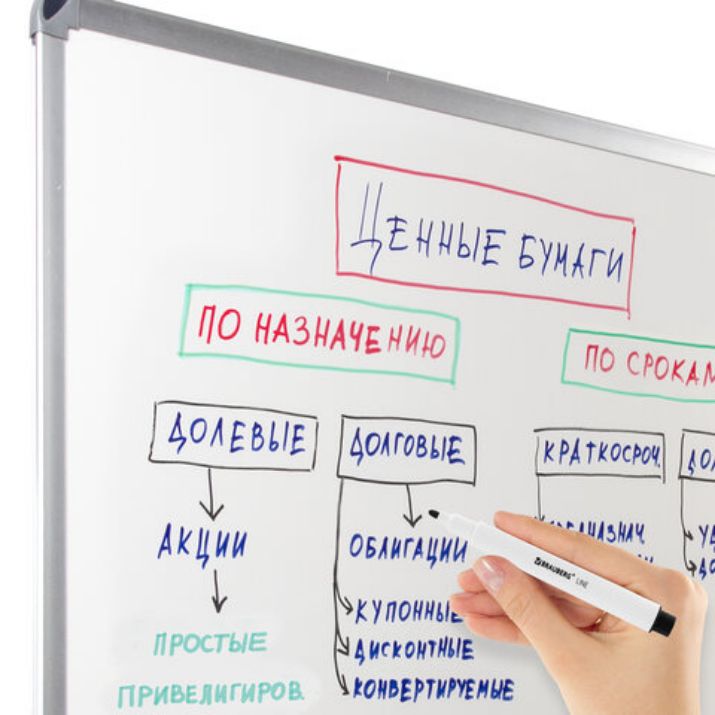 ЦЕННЫЕ БУМАГИ
ПО НАЗНАЧЕНИЮ
ПО СРОКАМ
ДОЛЕВЫЕ
ДОЛГОВЫЕ
КРАТКОСРОЧ.
АКЦИИ
ОБЛИГАЦИИ
КУПОННЫЕ
ПРОСТЫЕ
ДИСКОНТНЫЕ
ПРИВЕЛИГИРОВ.
КОНВЕРТИРУЕМЫЕ
BRAUBERG LINE